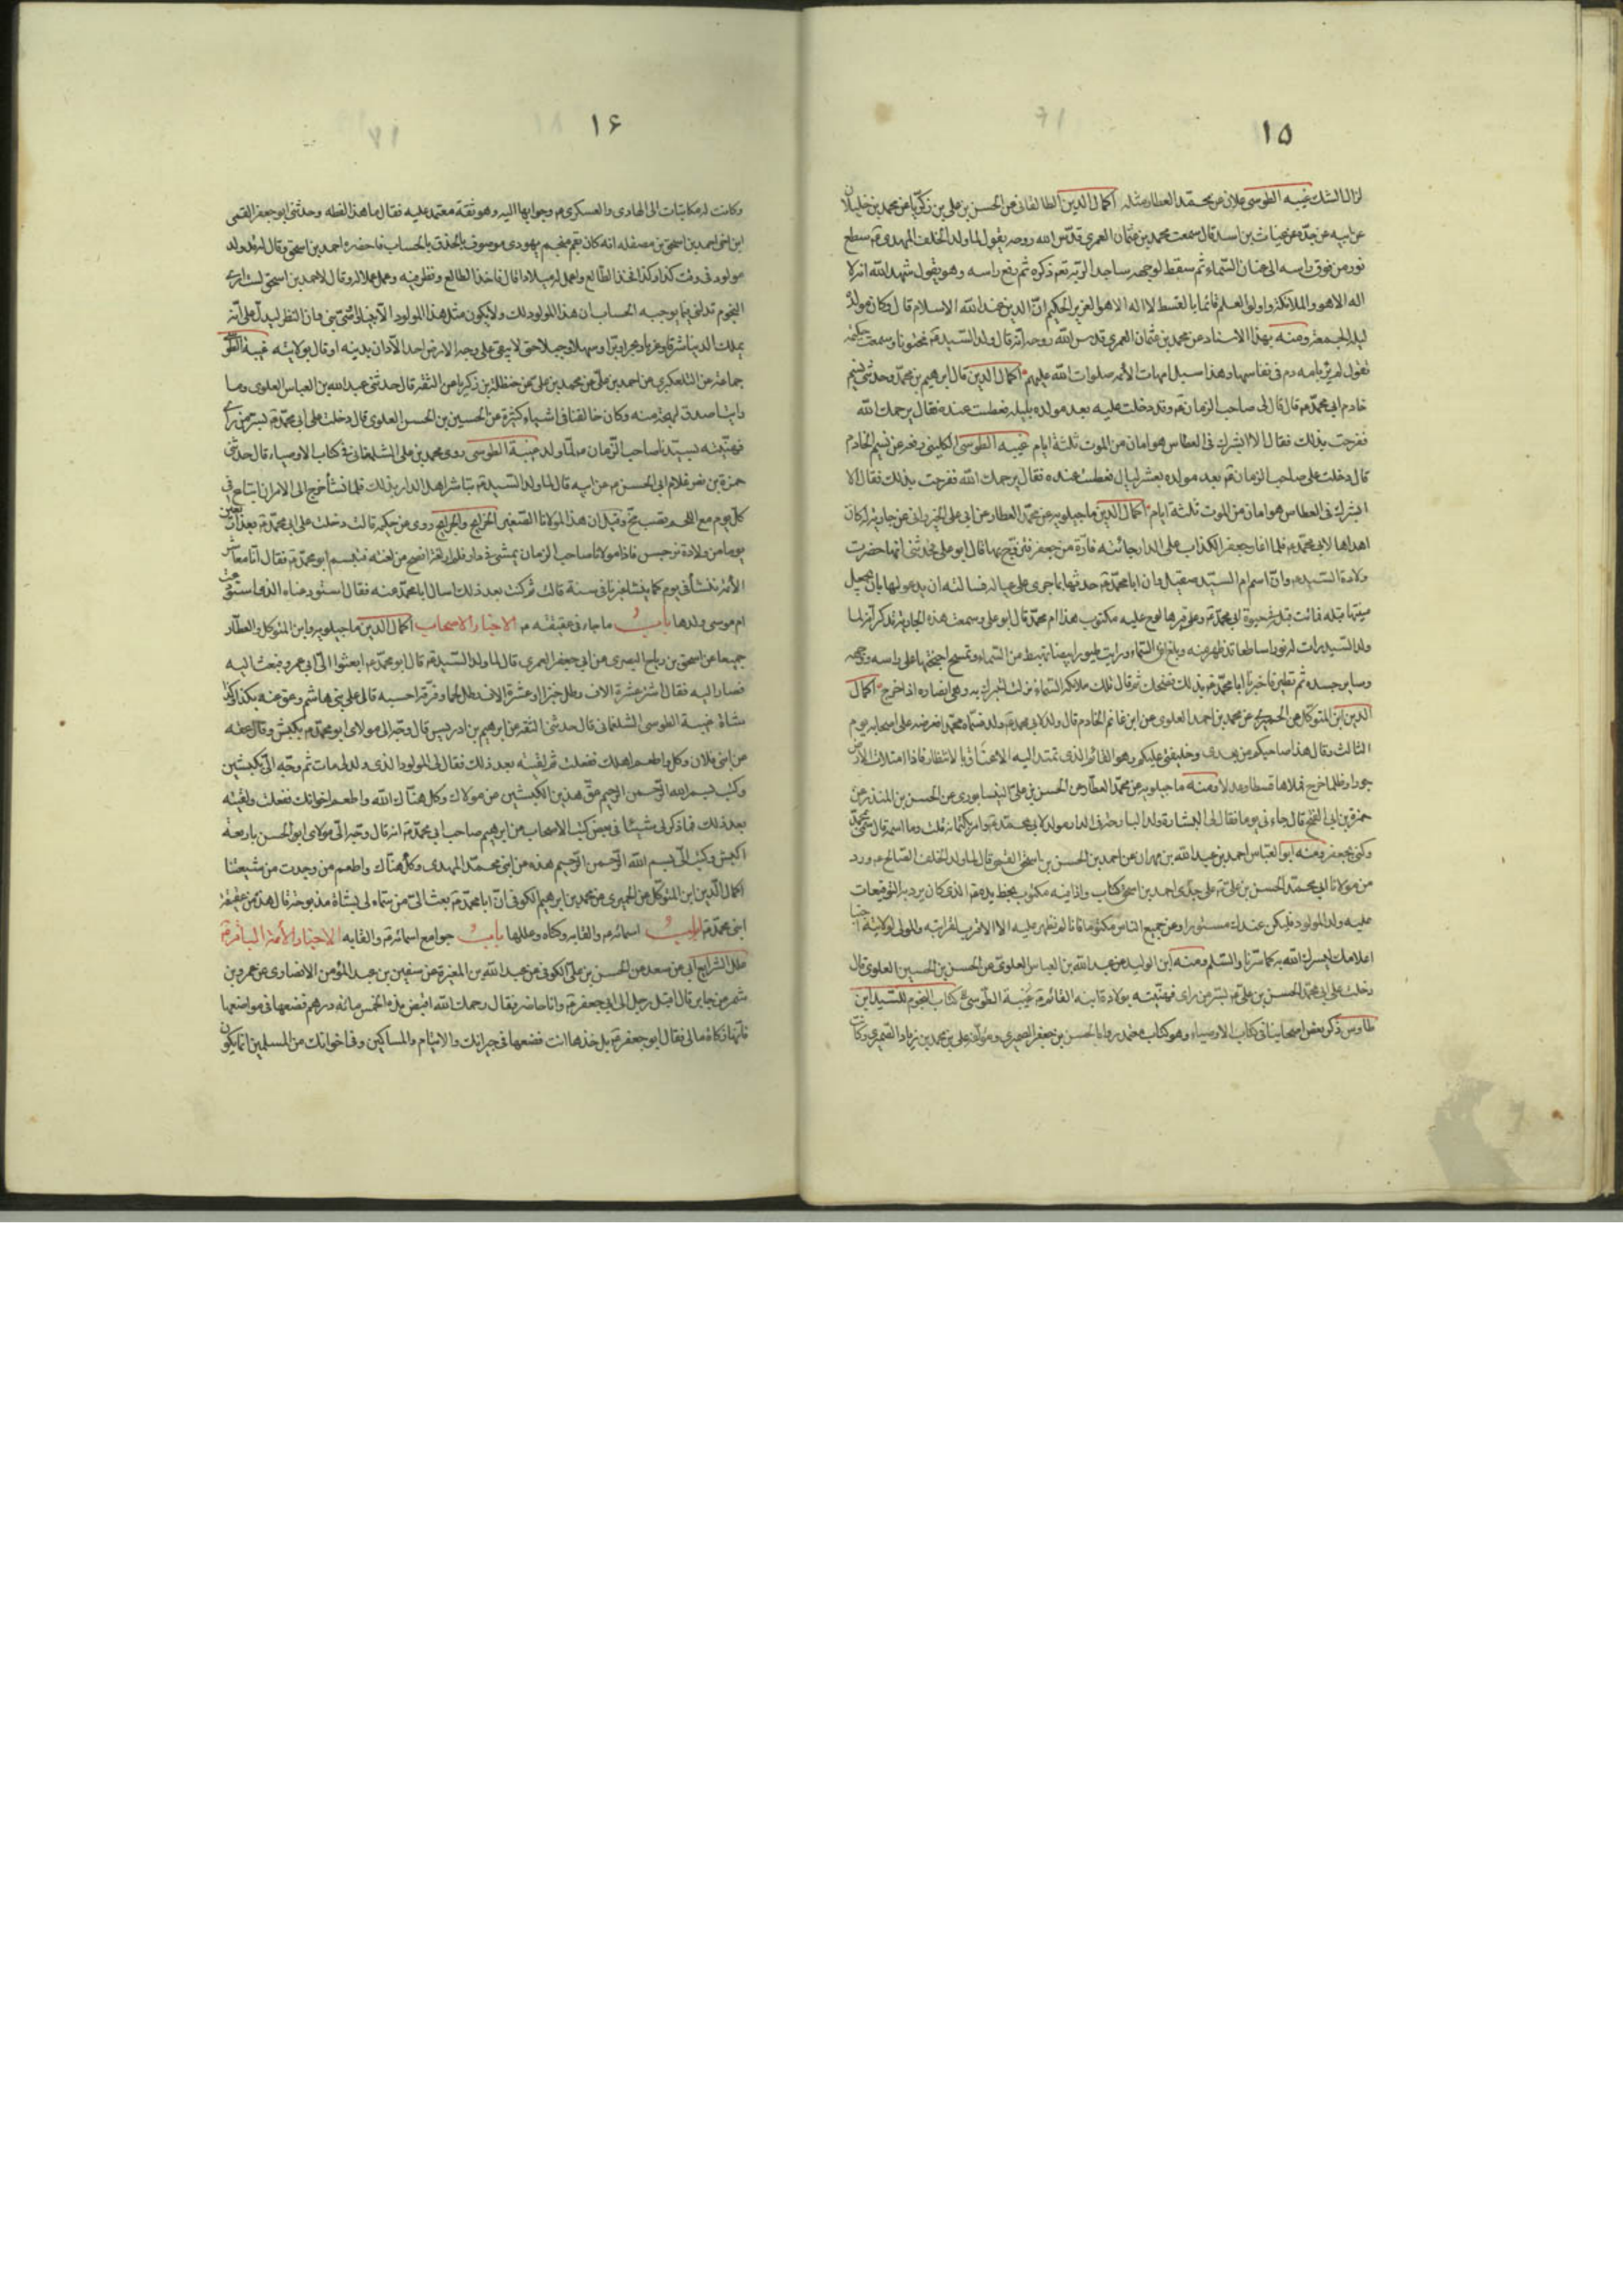 ١٥
لزال الشك غيبه الطوسى علان عن محمد العطار مثله اكمال الدين الطالقانى عن الحسن بن على بن زكريا عن محمد بن خليلان
عن ابيه عن جده عن غياث بن اسد قال سمعت محمد بن عثمان العمرى قدس الله روحه يقول لما ولد الخلف المهدى سطع
نور من فوق راسه الى عنان السماء ثم سقط لوجهه ساجدا لربه تعم ذكره ثم رفع راسه وهو يقول شهد الله انه لا
اله الا هو والملائكة واولوا العلم قائما بالقسط لا اله الا هو العزيز الحكيم ان الدين عند الله الاسلام قال وكان مولده
ليلة الجمعة ومنه بهذا الاسناد عن محمد بن عثمان العمرى قدس الله روحه انه قال ولد السيد مختونا وسمعت حكيمه
تقول لم ير بامه دم فى نفاسها وهذا سبيل امهات الائمه صلوات الله عليهم اكمال الدين قال ابرهيم بن محمد وحدثتنى نسيم
خادم ابى محمد قال قال لى صاحب الزمان وقد دخلت عليه بعد مولده بليلة فعطست عنده فقال يرحمك الله
ففرحت بذلك فقال الا ابشرك فى العطاس هو امان من الموت ثلثة ايام غيبه الطوسى الكلينى رفعه عن نسيم الخادم
قال دخلت على صاحب الزمان بعد مولده بعشر ليال فعطست عنده فقال يرحمك الله ففرحت بذلك فقال الا
ابشرك فى العطاس هو امان من الموت ثلثة ايام اكمال الدين ماجيلويه عن محمد العطار عن ابى على الخيزرانى عن جارية له كان
اهداها لابى محمد فلما اغار جعفر الكذاب على الدار جائته فارة من جعفر فتزوج بها قال ابو على فحدثتنى انها حضرت
ولادة السيد وان اسم ام السيد صقيل وان ابا محمد حدثها بما جرى على عياله فسالته ان يدعو لها بان يجعل
ميتتها قبله فماتت قبله فى حيوة ابى محمد وعلى قبرها لوح عليه مكتوب هذا ام محمد قال ابو على وسمعت هذه الجارية تذكر انه لما
ولد السيد رات له نورا ساطعا قد ظهر منه وبلغ افق السماء ورايت طيورا بيضا تهبط من السماء وتمسح اجنحتها على راسه ووجهه
وساير جسده ثم تطير فاخبرنا ابا محمد بذلك فضحك ثم قال تلك ملائكة السماء نزلت لتتبرك به وهى انصاره اذا خرج اكمال
الدين ابن المتوكل عن الحميرى عن محمد بن احمد العلوى عن ابن غانم الخادم قال ولد لابى محمد ولد فسماه محمدا فعرضه على اصحابه يوم
الثالث وقال هذا صاحبكم من بعدى وخليفتى عليكم وهو القائم الذى تمتد اليه الاعناق بالانتظار فاذا امتلات الارض
جورا وظلما خرج فملاها قسطا وعدلا ومنه ماجيلويه عن محمد العطار عن الحسن بن على النيسابورى عن الحسن بن المنذر عن
حمزة بن ابى الفتح قال جاءنى يوما فقال لى البشارة ولد البارحة فى الدار مولد لابى محمد وامر بكتمانه قلت وما اسمه قال سمى محمد
وكنى بجعفر ومنه ابو العباس احمد بن عبد الله بن مهران عن احمد بن الحسن بن اسحق القمى قال لما ولد الخلف الصالح ورد
من مولانا ابى محمد الحسن بن على على جدى احمد بن اسحق كتاب واذا فيه مكتوب بخط يده الذى كان يرد به التوقيعات
عليه ولد المولود فليكن عندك مستورا وعن جميع الناس مكتوما فانا لم نظهر عليه الا الاقرب لقرابته والمولى لولايته احببنا
اعلامك ليسرك الله به كما سرنا والسلم ومنه ابن الوليد عن عبد الله بن العباس العلوى عن الحسن بن الحسين العلوى قال
دخلت على ابى محمد الحسن بن على بسر من راى فهنيته بولادة ابنه القائم غيبة الطوسى كتاب النجوم للسيد ابن
طاوس ذكر بعض اصحابنا فى كتاب الاوصياء وهو كتاب معتمد رواه الحسن بن جعفر الصيمرى ومؤلفه على بن محمد بن زياد الصيمرى وكانت
١۶
وكانت له مكاتبات الى الهادى والعسكرى وجوابها اليه وهو ثقة معتمد عليه فقال ما هذا لفظه وحدثنى ابو جعفر القمى
ابن اخى احمد بن اسحق بن مصقله انه كان بقم منجم يهودى موصوف بالحذق بالحساب فاحضره احمد بن اسحق وقال له قد ولد
مولود فى وقت كذا وكذا فخذ الطالع واعمل له ميلادا قال فاخذ الطالع ونظر فيه وعمل عملا له وقال لاحمد بن اسحق لست ارى
النجوم تدلنى فيما يوجبه الحساب ان هذا المولود لك ولا يكون مثل هذا المولود الا نبيا او وصى نبى وان النظر ليدل على انه
يملك الدنيا شرقا وغربا وبرا وبحرا وسهلا وجبلا حتى لا يبقى على وجه الارض احد الا دان بدينه او قال بولايته غيبة الطوسى
جماعة عن التلعكبرى عن احمد بن على عن محمد بن على عن حنظلة بن زكريا عن الثقة قال حدثنى عبد الله بن العباس العلوى وما
رايت اصدق لهجة منه وكان خالفنا فى اشياء كثيرة عن الحسين بن الحسن العلوى قال دخلت على ابى محمد بسر من راى
فهنيته بسيدنا صاحب الزمان لما ولد غيبة الطوسى روى محمد بن على الشلمغانى فى كتاب الاوصياء قال حدثنى
حمزة بن نصر غلام ابى الحسن عن ابيه قال لما ولد السيد تباشر اهل الدار بذلك فلما نشأ خرج الى الامر ان ابتاع فى
كل يوم مع اللحم قصب مخ وقيل ان هذا لمولانا الصغير الخرايج والجرايح روى عن حكيمة قالت دخلت على ابى محمد بعد اربعين
يوما من ولادة نرجس فاذا مولانا صاحب الزمان يمشى فى الدار فلم ار لغة افصح من لغته فتبسم ابو محمد فقال انا معاشر
الائمة ننشأ فى يوم كما ينشا غيرنا فى سنة قالت ثم كنت بعد ذلك اسال ابا محمد عنه فقال استودعناه الذى استودعت
ام موسى ولدها باب ما جاء فى عقيقته الاخبار الاصحاب اكمال الدين ماجيلويه وابن المتوكل والعطار
جميعا عن اسحق بن رياح البصرى عن ابى جعفر العمرى قال لما ولد السيد قال ابو محمد ابعثوا الى ابى عمرو فبعث اليه
فصار اليه فقال اشتر عشرة الاف رطل خبزا وعشرة الاف رطل لحما وفرقه احسبه قال على بنى هاشم وعق عنه بكذا وكذا
شاة غيبة الطوسى الشلمغانى قال حدثنى الثقة عن ابرهيم بن ادريس قال وجه الى مولاى ابو محمد بكبش وقال عقه
عن ابنى فلان وكل واطعم اهلك ففعلت ثم لقيته بعد ذلك فقال لى المولود الذى ولد لى مات ثم وجه الى بكبشين
وكتب بسم الله الرحمن الرحيم عق هذين الكبشين عن مولاك وكل هناك الله واطعم اخوانك ففعلت ولقيته
بعد ذلك فما ذكر لى شيئا فى بعض كتب الاصحاب عن ابرهيم صاحب ابى محمد انه قال وجه الى مولاى ابو الحسن باربعة
اكبش وكتب الى بسم الله الرحمن الرحيم هذه عن ابنى محمد المهدى وكل هناك واطعم من وجدت من شيعتنا
اكمال الدين ابن المتوكل عن الحميرى عن محمد بن ابرهيم الكوفى ان ابا محمد بعث الى من سماه لى بشاة مذبوحة قال هذه من عقيقة
ابنى محمد ابواب اسمائه والقابه وكناه وعللها باب جوامع اسمائه والقابه الاخبار الأئمة الباقر
علل الشرايع ابى عن سعد عن الحسن بن على الكوفى عن عبد الله بن المغيرة عن سفين بن عبد المؤمن الانصارى عن عمرو بن
شمر عن جابر قال اقبل رجل الى ابى جعفر وانا حاضر فقال رحمك الله اقبض هذه الخمس مائة درهم فضعها فى مواضعها
فانها زكاة مالى فقال ابو جعفر بل خذها انت فضعها فى جيرانك والايتام والمساكين وفى اخوانك من المسلمين انما يكون